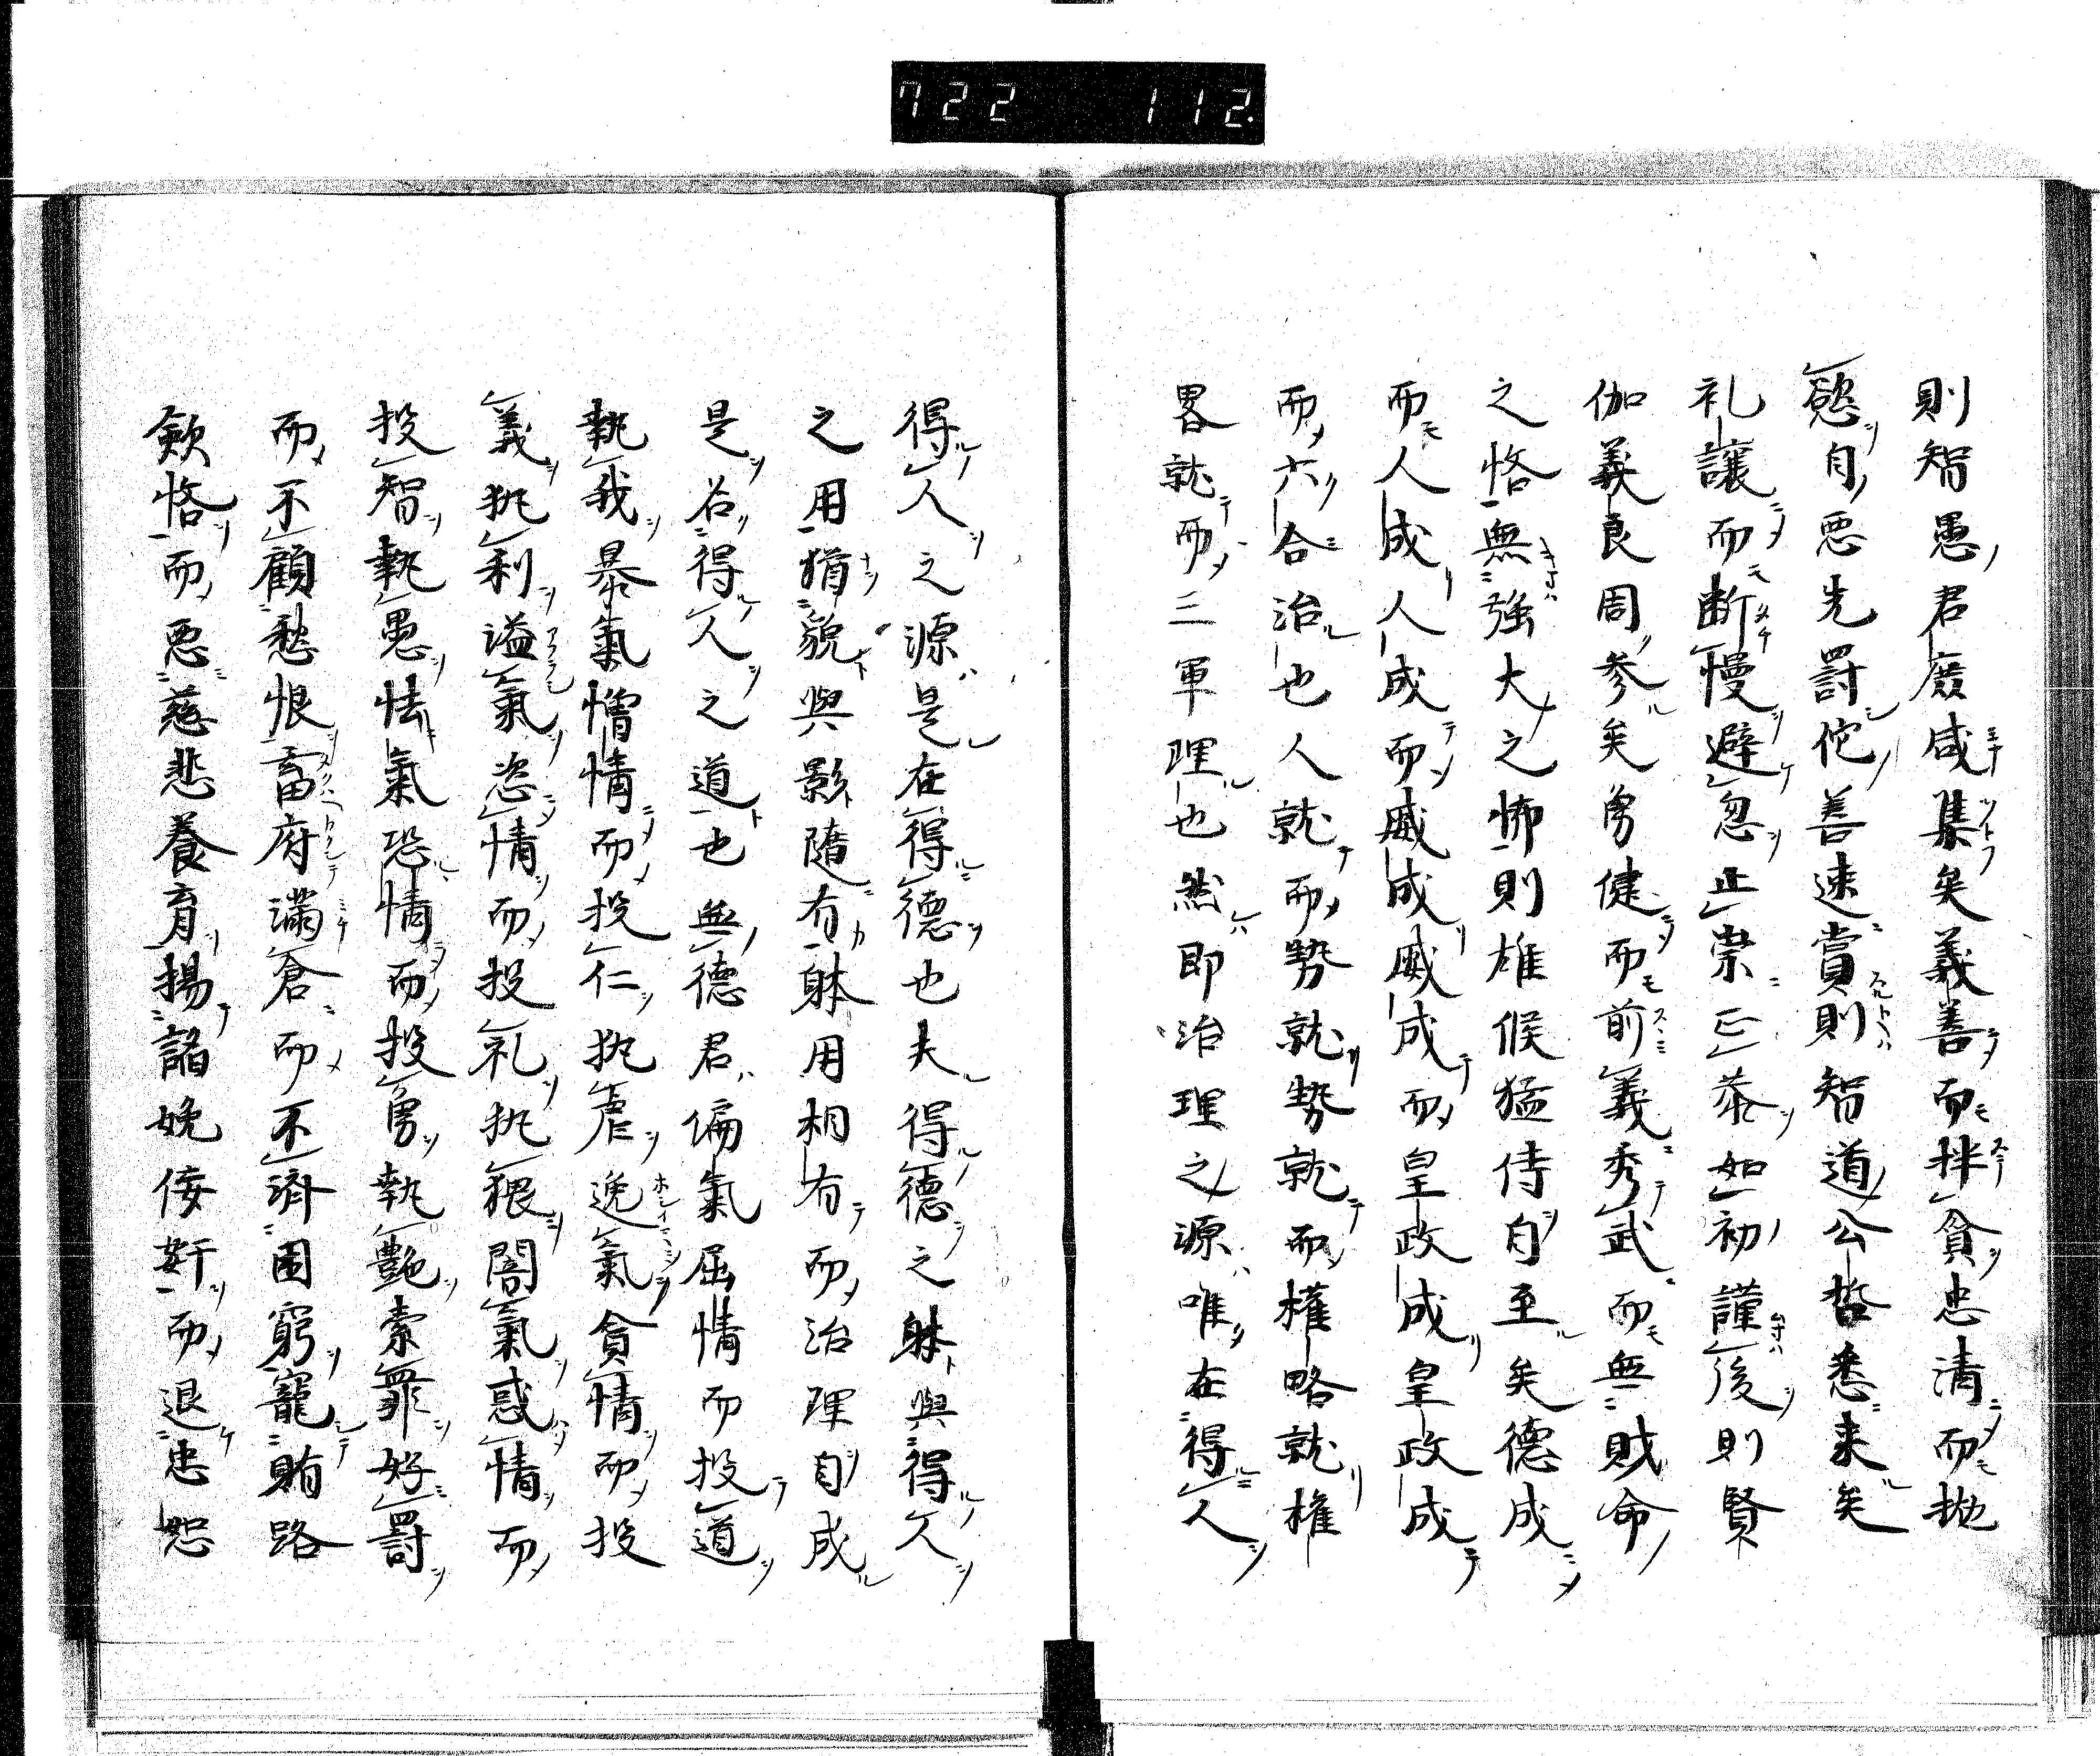 722 112.
則智愚君廢咸集矣義善而拌貪忠清而拋
慾自惡先罰佗善速賞則智道公哲悉来矣
礼讓而断慢避忽止崇正恭如初謹後則賢
伽義良周参矣勇健而前義秀武而無賊命
之悋無強大之怖則雄候猛侍自至矣德成
而人成人成而威成威成而皇政成皇政成
而六合治也人就而勢就勢就而権略就権
畧就而三軍理也然即治理之源唯在得人
得人之源是在得德也夫得德之躰與得人
之用猶貌與影隨有躰用相有而治理自成
是名得人之道也無德君偏氣屈情而投道
執我暴氣憎情而投仁执虐逸氣貪情而投
義执利謚氣恣情而投礼执猥闇氣惑情而
投智執愚怯氣恐情而投勇執艶索罪好罰
而不顧愁恨畜府滿倉而不濟困窮寵賄路
歛悋而惡慈悲養育揚諂婉佞奸而退忠恕